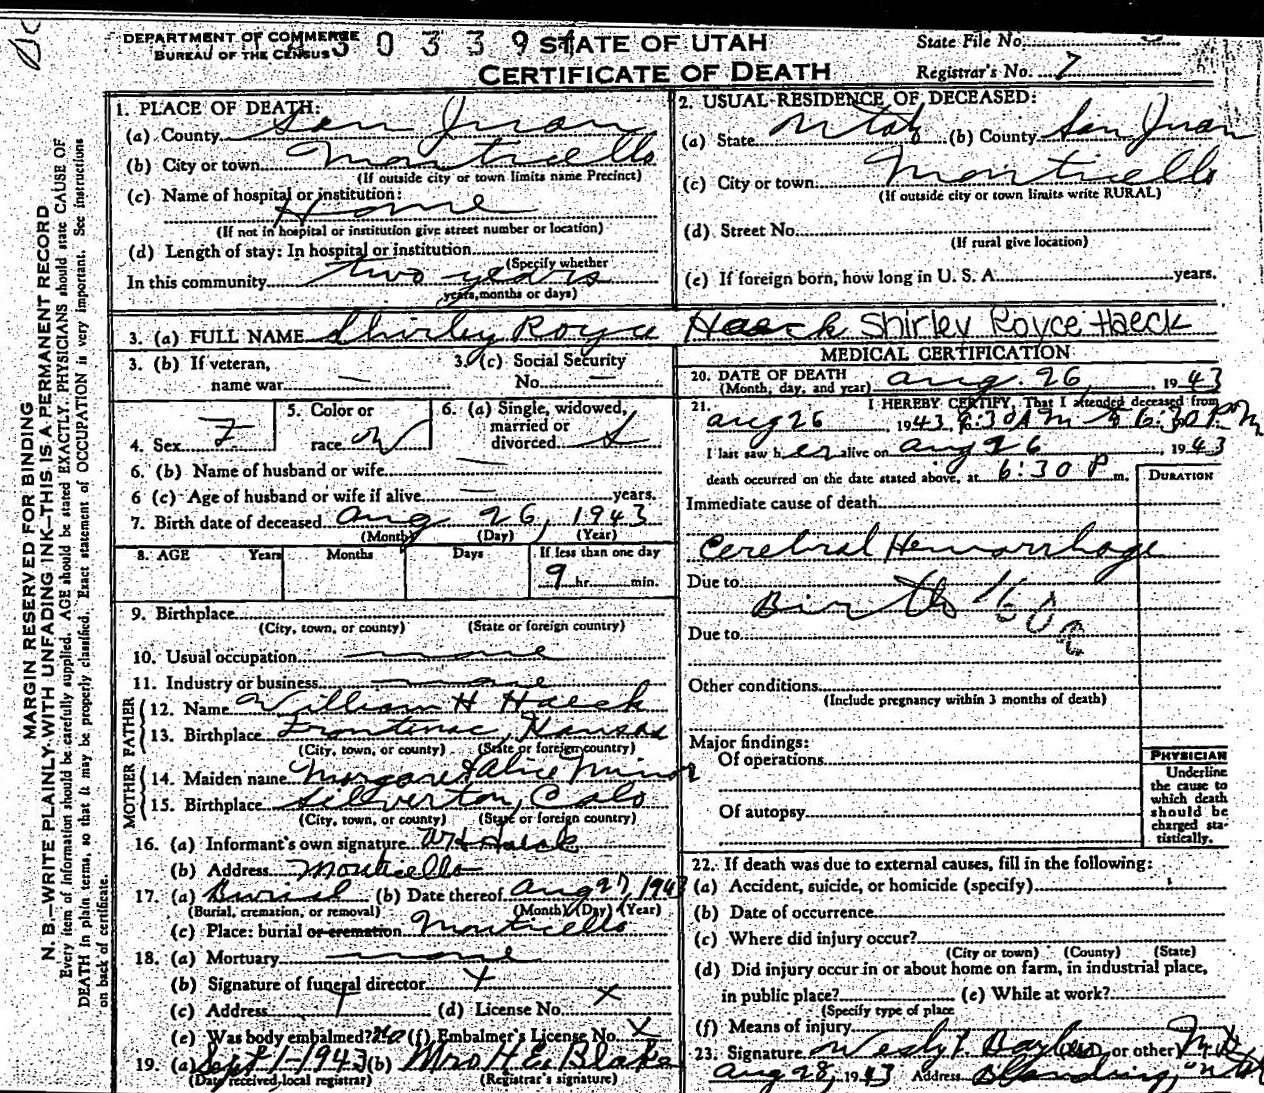 DEPARTMENT OF COMMERCE
BUREAU OF THE CENSUS
STATE OF UTAH
CERTIFICATE OF DEATH
State File No.
Registrar's No. 7
MARGIN RESERVED FOR BINDING
N. B.—WRITE PLAINLY WITH UNFADING INK—THIS IS A PERMANENT RECORD
Every item of information should be carefully supplied. AGE should be stated EXACTLY. PHYSICIANS should state CAUSE OF
DEATH in plain terms, so that it may be properly classified. Exact statement of OCCUPATION is very important. See instructions
on back of certificate.
1. PLACE OF DEATH:
(a) County San Juan
(b) City or town Monticello
(If outside city or town limits name Precinct)
(c) Name of hospital or institution:
Home
(If not in hospital or institution give street number or location)
(d) Length of stay: In hospital or institution
(Specify whether
In this community two years
years, months or days)
2. USUAL RESIDENCE OF DECEASED:
(a) State Utah (b) County San Juan
(c) City or town Monticello
(If outside city or town limits write RURAL)
(d) Street No.
(If rural give location)
(e) If foreign born, how long in U. S. A. years.
3. (a) FULL NAME Shirley Royce Haeck Shirley Royce Haeck
3. (b) If veteran, name war —
3. (c) Social Security No. —
4. Sex F
5. Color or race W
6. (a) Single, widowed, married or divorced S
6. (b) Name of husband or wife —
6 (c) Age of husband or wife if alive — years.
7. Birth date of deceased Aug 26, 1943
(Month) (Day) (Year)
8. AGE Years Months Days If less than one day
9 hr. min.
9. Birthplace
(City, town, or county) (State or foreign country)
10. Usual occupation none
11. Industry or business none
FATHER
12. Name William H Haeck
13. Birthplace Frontenac, Kansas
(City, town, or county) (State or foreign country)
MOTHER
14. Maiden name Margaret Alice Minor
15. Birthplace Silverton, Colo
(City, town, or county) (State or foreign country)
16. (a) Informant's own signature WH Haeck
(b) Address Monticello
17. (a) Burial (b) Date thereof Aug 27, 1943
(Burial, cremation, or removal) (Month) (Day) (Year)
(c) Place: burial or cremation Monticello
18. (a) Mortuary none
(b) Signature of funeral director X
(c) Address (d) License No. X
(e) Was body embalmed? no (f) Embalmer's License No. X
19. (a) Sept 1-1943 (b) Mrs H.E. Blake
(Date received local registrar) (Registrar's signature)
MEDICAL CERTIFICATION
20. DATE OF DEATH
(Month, day, and year) Aug. 26, 1943
21. I HEREBY CERTIFY, That I attended deceased from
Aug 26, 1943, 8:30 A M to 6:30 P M
I last saw her alive on Aug 26, 1943
death occurred on the date stated above, at 6:30 P m.
DURATION
Immediate cause of death
Cerebral Hemorrhage
Due to
Birth 160
Due to
Other conditions
(Include pregnancy within 3 months of death)
Major findings:
Of operations
Of autopsy
PHYSICIAN
Underline
the cause to
which death
should be
charged sta-
tistically.
22. If death was due to external causes, fill in the following:
(a) Accident, suicide, or homicide (specify)
(b) Date of occurrence
(c) Where did injury occur?
(City or town) (County) (State)
(d) Did injury occur in or about home on farm, in industrial place,
in public place? (e) While at work?
(Specify type of place
(f) Means of injury
23. Signature or other
Aug 28, 1943 Address Blanding, Utah